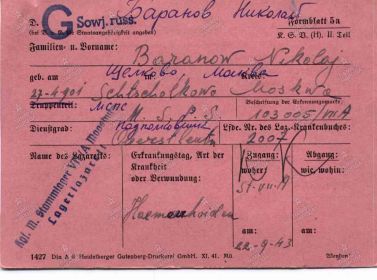 Баранов Николай
D. G Sowj. russ.
Formblatt 5a
(bei D. u. V. die Staatsangehörigkeit angeben)
K. S. V. (H). II. Teil
Familien- u. Vorname:
Baranow Nikolaj
Щелково Москва
geb. am in Kreis
27-4-901 Schtscholkowo Moskwa
Truppenteil: Beschriftung der Erkennungsmarke:
M. S. P. S. 103005/VIIA
подполковник
Dienstgrad: Lfde. Nr. des Laz.-Krankenbuches:
Oberstleutn. 2007
Name des Lazaretts Erkrankungstag, Art der Krankheit oder Verwundung: Zugang: woher: Abgang: wie, wohin:
St. VII A
Haemorrhoiden
am: am:
22-9-43
Kgf. M. Stammlager VII/A Moosburg
Lagerlazarett
1427 Din A 6 Heidelberger Gutenberg-Druckerei GmbH. XI. 41.